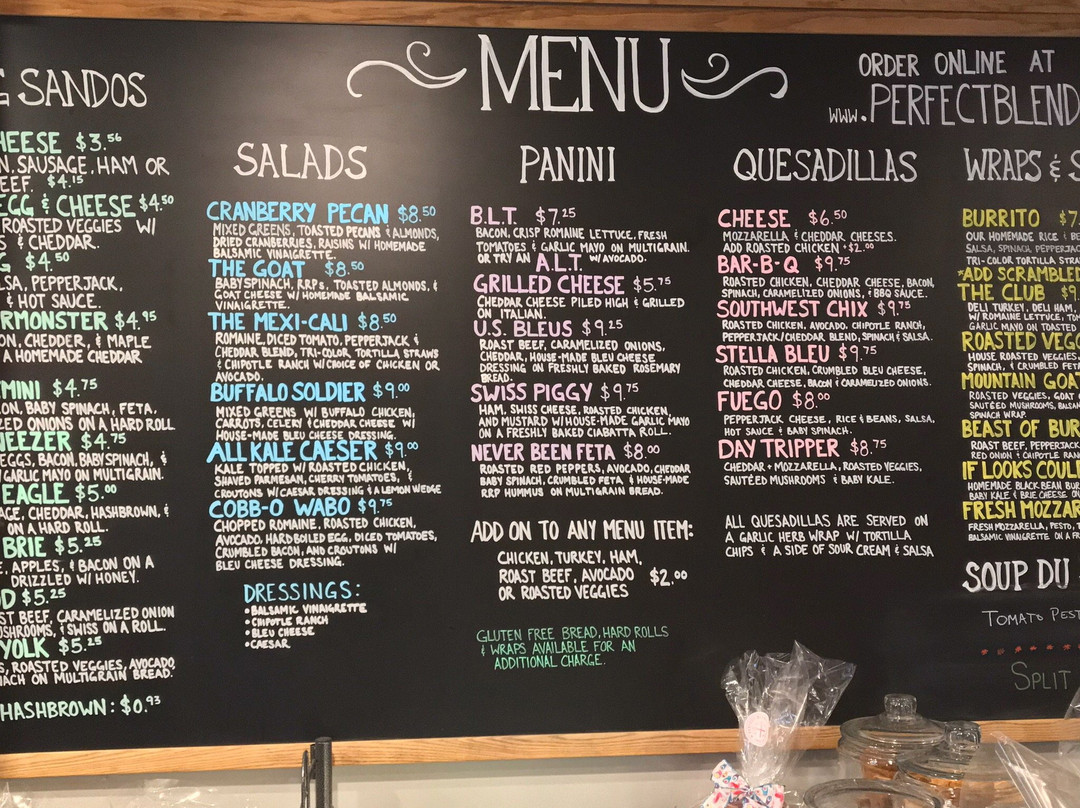 MENU
ORDER ONLINE AT
www.PERFECTBLEND
G SANDOS
HEESE $3.56
N, SAUSAGE, HAM OR
EEF. $4.15
EGG & CHEESE $4.50
ROASTED VEGGIES W/
S & CHEDDAR.
G $4.50
LSA, PEPPERJACK,
& HOT SAUCE.
RMONSTER $4.95
ON, CHEDDER, & MAPLE
A HOMEMADE CHEDDAR
EMINI $4.75
ON, BABY SPINACH, FETA,
ZED ONIONS ON A HARD ROLL
HEEZER $4.75
EGGS, BACON, BABY SPINACH, &
GARLIC MAYO ON MULTIGRAIN.
EAGLE $5.00
AGE, CHEDDAR, HASHBROWN, &
ON A HARD ROLL.
BRIE $5.25
E, APPLES, & BACON ON A
DRIZZLED W/ HONEY.
D $5.25
ST BEEF, CARAMELIZED ONION
USHROOMS, & SWISS ON A ROLL.
YOLK $5.25
S, ROASTED VEGGIES, AVOCADO,
NACH ON MULTIGRAIN BREAD.
HASHBROWN: $0.93
SALADS
CRANBERRY PECAN $8.50
MIXED GREENS, TOASTED PECANS & ALMONDS,
DRIED CRANBERRIES, RAISINS W/ HOMEMADE
BALSAMIC VINAIGRETTE.
THE GOAT $8.50
BABY SPINACH, RRPs, TOASTED ALMONDS, &
GOAT CHEESE W/ HOMEMADE BALSAMIC
VINAIGRETTE.
THE MEXI-CALI $8.50
ROMAINE, DICED TOMATO, PEPPERJACK &
CHEDDAR BLEND, TRI-COLOR TORTILLA STRAWS
& CHIPOTLE RANCH W/ CHOICE OF CHICKEN OR
AVOCADO.
BUFFALO SOLDIER $9.00
MIXED GREENS W/ BUFFALO CHICKEN,
CARROTS, CELERY & CHEDDAR CHEESE W/
HOUSE-MADE BLEU CHEESE DRESSING.
ALL KALE CAESER $9.00
KALE TOPPED W/ ROASTED CHICKEN,
SHAVED PARMESAN, CHERRY TOMATOES, &
CROUTONS W/ CAESAR DRESSING & A LEMON WEDGE
COBB-O WABO $9.75
CHOPPED ROMAINE, ROASTED CHICKEN,
AVOCADO, HARD BOILED EGG, DICED TOMATOES,
CRUMBLED BACON, AND CROUTONS W/
BLEU CHEESE DRESSING.
DRESSINGS:
• BALSAMIC VINAIGRETTE
• CHIPOTLE RANCH
• BLEU CHEESE
• CAESAR
PANINI
B.L.T. $7.25
BACON, CRISP ROMAINE LETTUCE, FRESH
TOMATOES & GARLIC MAYO ON MULTIGRAIN.
OR TRY AN A.L.T. W/ AVOCADO.
GRILLED CHEESE $5.75
CHEDDAR CHEESE PILED HIGH & GRILLED
ON ITALIAN.
U.S. BLEUS $9.25
ROAST BEEF, CARAMELIZED ONIONS,
CHEDDAR, HOUSE-MADE BLEU CHEESE
DRESSING ON FRESHLY BAKED ROSEMARY
BREAD.
SWISS PIGGY $9.75
HAM, SWISS CHEESE, ROASTED CHICKEN,
AND MUSTARD W/ HOUSE-MADE GARLIC MAYO
ON A FRESHLY BAKED CIABATTA ROLL.
NEVER BEEN FETA $8.00
ROASTED RED PEPPERS, AVOCADO, CHEDDAR
BABY SPINACH, CRUMBLED FETA, & HOUSE-MADE
RRP HUMMUS ON MULTIGRAIN BREAD.
ADD ON TO ANY MENU ITEM:
CHICKEN, TURKEY, HAM,
ROAST BEEF, AVOCADO $2.00
OR ROASTED VEGGIES
GLUTEN FREE BREAD, HARD ROLLS
& WRAPS AVAILABLE FOR AN
ADDITIONAL CHARGE.
QUESADILLAS
CHEESE $6.50
MOZZARELLA & CHEDDAR CHEESES.
ADD ROASTED CHICKEN • $2.00
BAR-B-Q $9.75
ROASTED CHICKEN, CHEDDAR CHEESE, BACON,
SPINACH, CARAMELIZED ONIONS, & BBQ SAUCE.
SOUTHWEST CHIX $9.75
ROASTED CHICKEN, AVOCADO, CHIPOTLE RANCH,
PEPPERJACK/CHEDDAR BLEND, SPINACH & SALSA.
STELLA BLEU $9.75
ROASTED CHICKEN, CRUMBLED BLEU CHEESE,
CHEDDAR CHEESE, BACON & CARAMELIZED ONIONS.
FUEGO $8.00
PEPPERJACK CHEESE, RICE & BEANS, SALSA,
HOT SAUCE & BABY SPINACH.
DAY TRIPPER $8.75
CHEDDAR + MOZZARELLA, ROASTED VEGGIES,
SAUTÉED MUSHROOMS & BABY KALE.
ALL QUESADILLAS ARE SERVED ON
A GARLIC HERB WRAP W/ TORTILLA
CHIPS & A SIDE OF SOUR CREAM & SALSA
WRAPS & S
BURRITO $7
OUR HOMEMADE RICE & BE
SALSA, SPINACH, PEPPERJAC
TRI-COLOR TORTILLA STRA
*ADD SCRAMBLED
THE CLUB $9
DELI TURKEY, DELI HAM,
W/ ROMAINE LETTUCE, TOM
GARLIC MAYO ON TOASTED
ROASTED VEGG
HOUSE ROASTED VEGGIES,
SPINACH, & CRUMBLED FETA
MOUNTAIN GOAT
ROASTED VEGGIES, GOAT
SAUTÉED MUSHROOMS, BALSA
SPINACH WRAP.
BEAST OF BUR
ROAST BEEF, PEPPERJACK
RED ONION & CHIPOTLE RAN
IF LOOKS COUL
HOMEMADE BLACK BEAN BUR
BABY KALE & BRIE CHEESE ON
FRESH MOZZAR
FRESH MOZZARELLA, PESTO, T
BALSAMIC VINAIGRETTE ON A FR
SOUP DU
TOMATO PEST
SPLIT